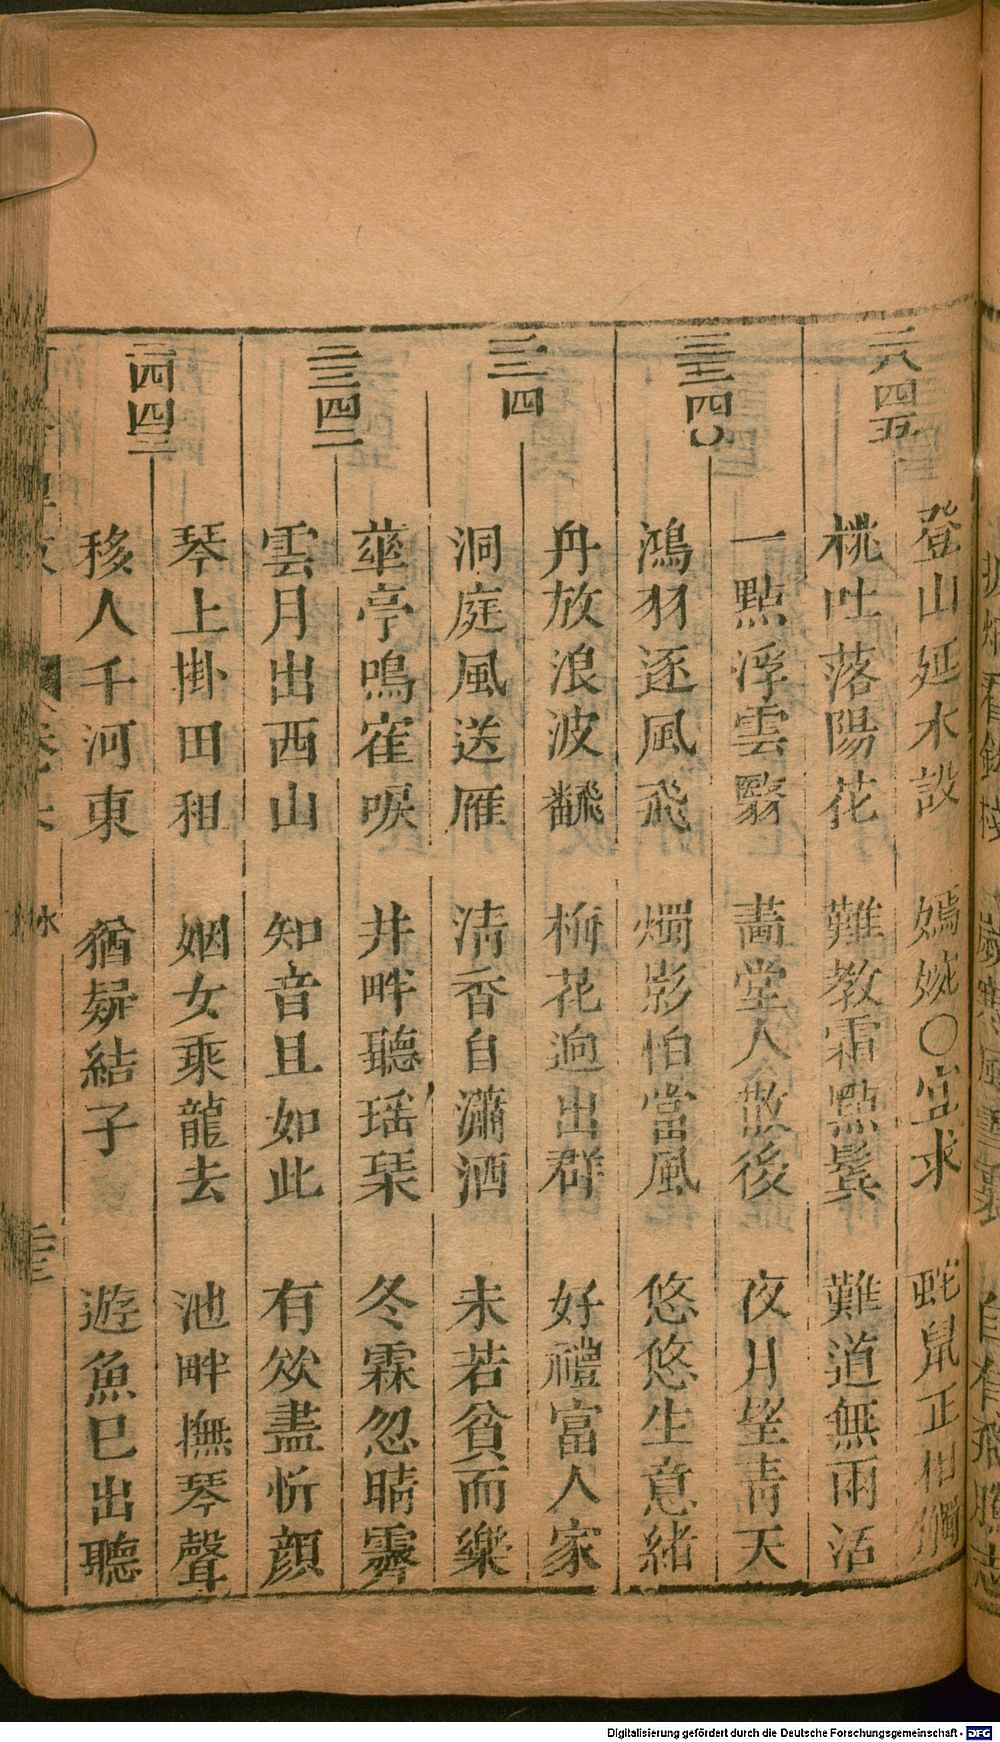 三八四五
登山延木設 嫣婉〇宜求 蛇鼠正相
桃吐落陽花 難教霜點鬢 難道無雨活
三三四〇
一點浮雲翳 畵堂人散後 夜月坐青天
鴻羽逐風飛 燭影怕當風 悠悠生意緒
三三四
舟放浪波飜 梅花逈出群 好禮富人家
洞庭風送雁 清香自瀟洒 未若貧而樂
三三四二
華亭鳴寉唳 井畔聽瑶琹 冬霖忽晴霽
雲月出西山 知音且如此 有欢盡忻顔
三四四三
琴上掛田租 姻女乘龍去 池畔撫琴聲
移人千河東 猶疑結子 遊魚已出聽
Digitalisierung gefördert durch die Deutsche Forschungsgemeinschaft - DFG